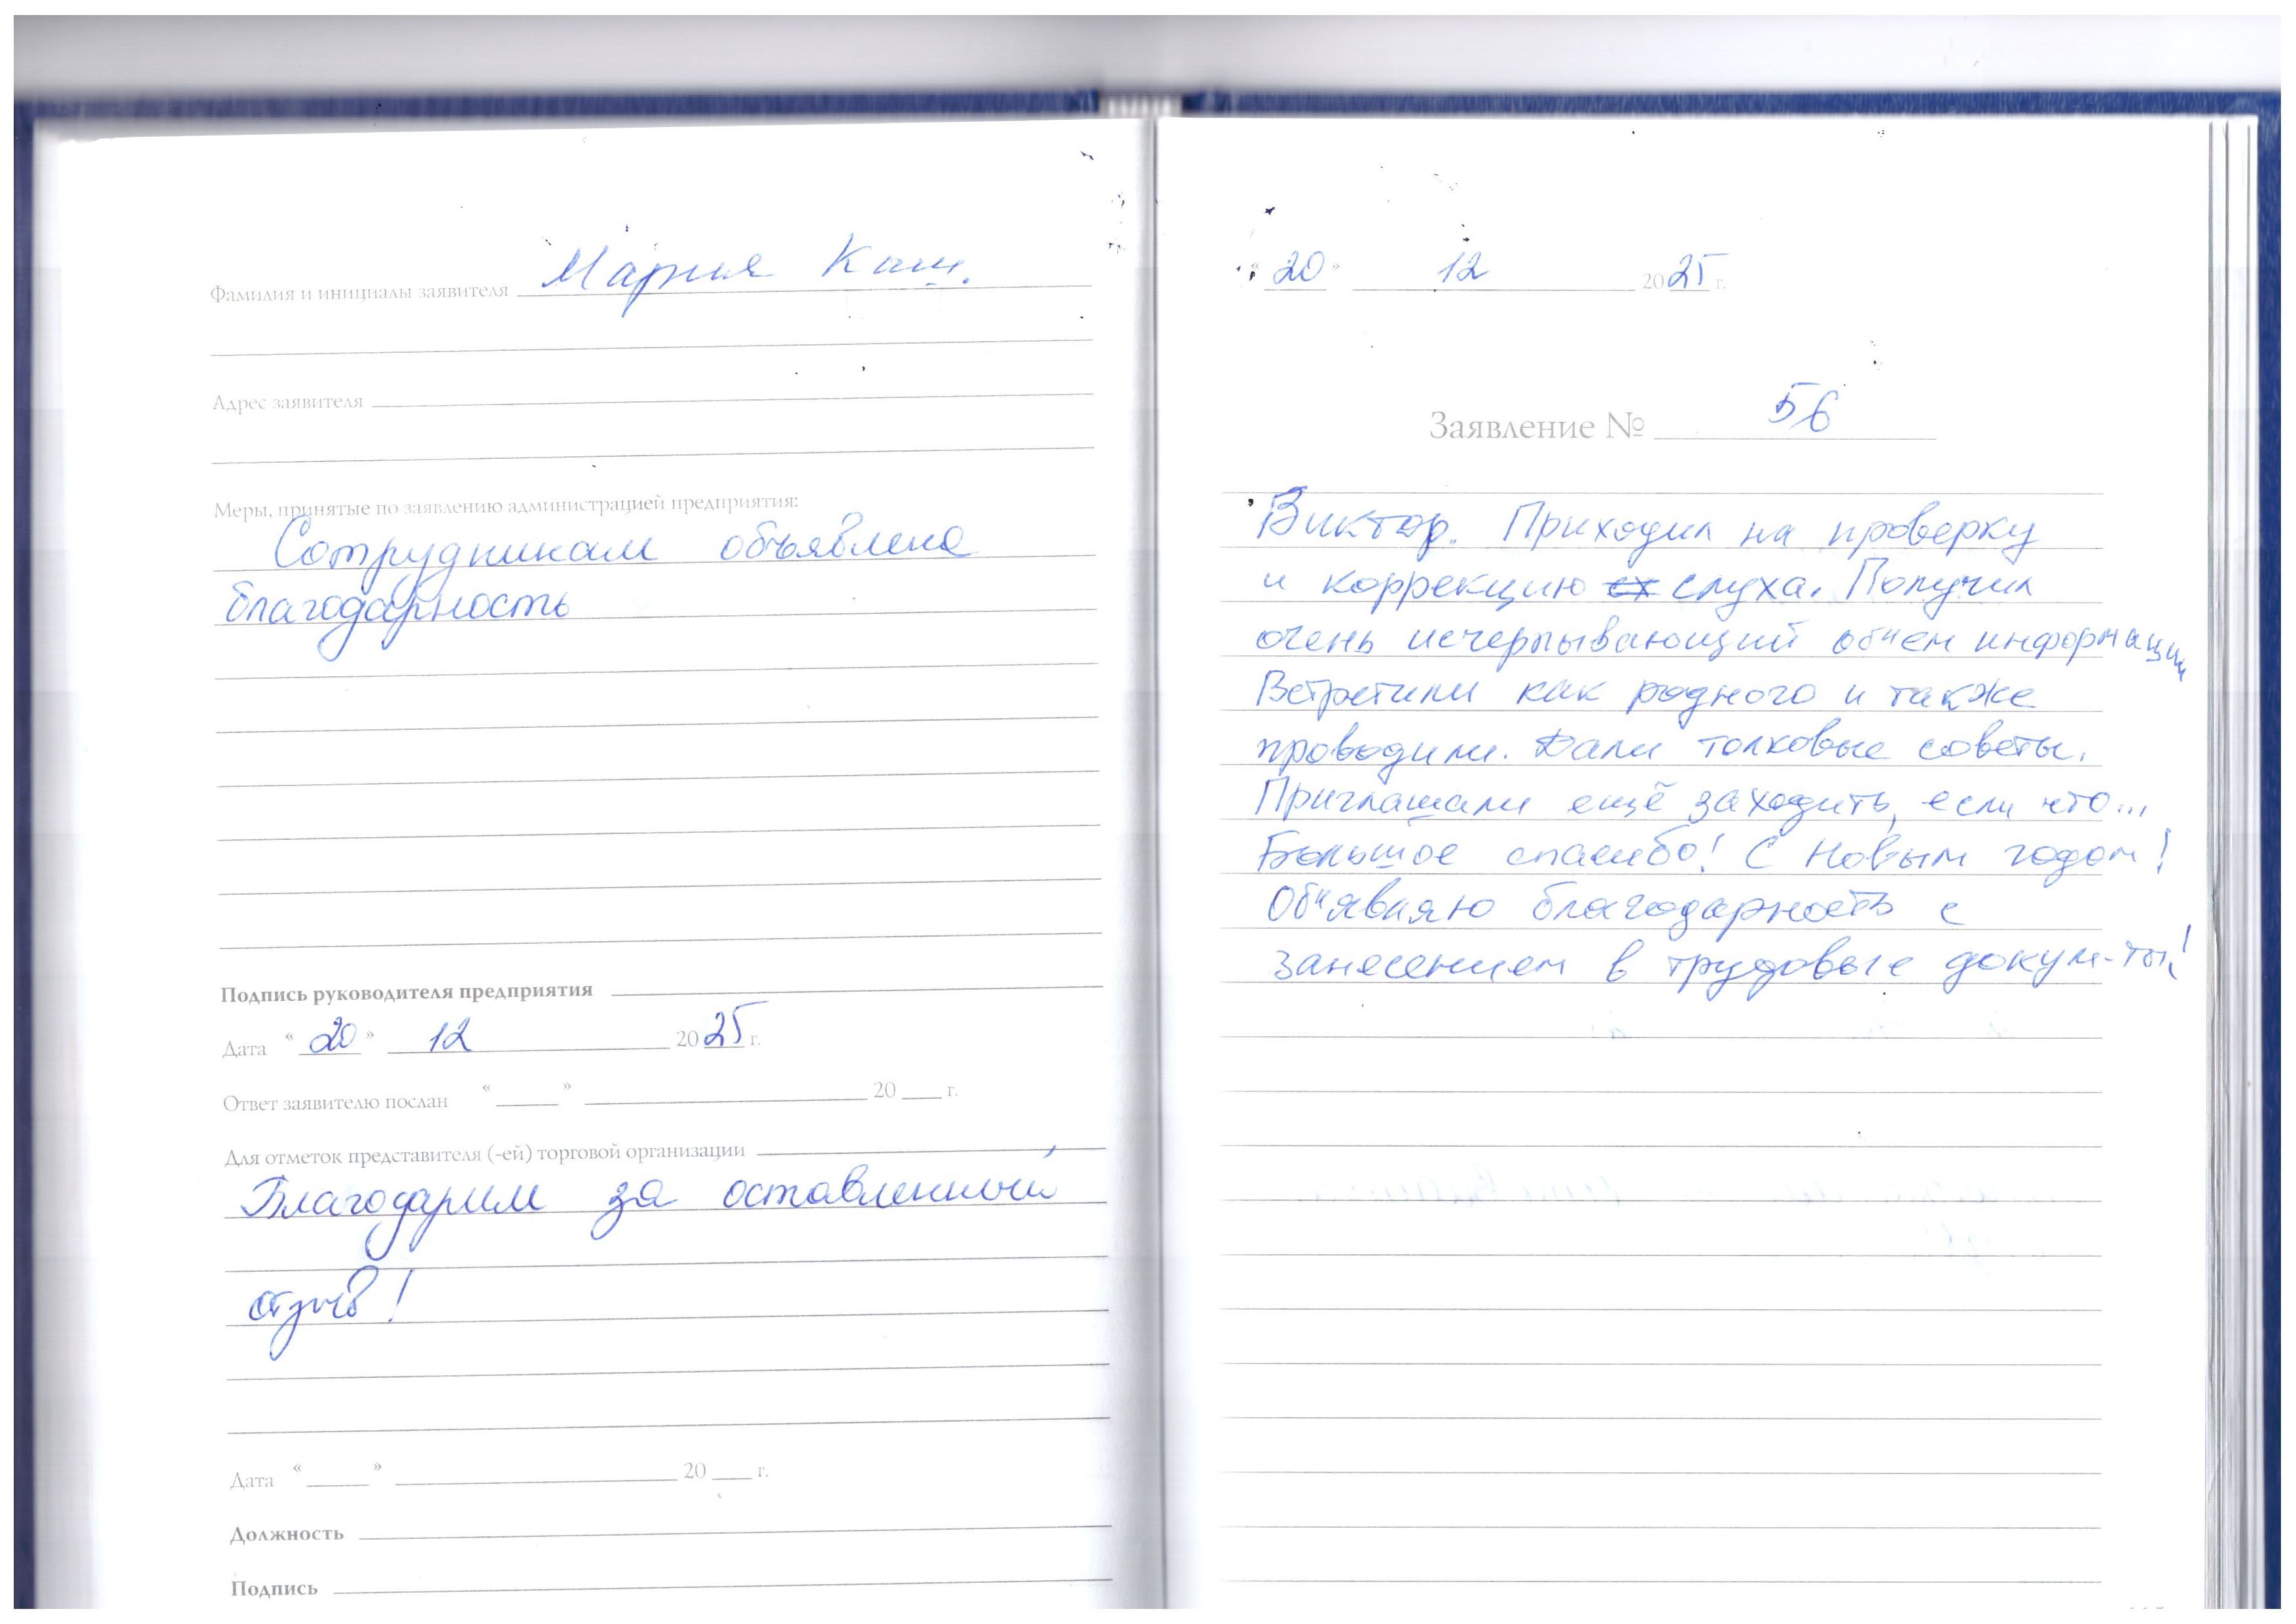 Фамилия и инициалы заявителя Мария Кащ.
Адрес заявителя
Меры, принятые по заявлению администрацией предприятия:
Сотрудникам объявлена
благодарность
Подпись руководителя предприятия
Дата « 20 » 12 20 25 г.
Ответ заявителю послан « » 20 г.
Для отметок представителя (-ей) торговой организации
Благодарим за оставленный
отзыв!
Дата « » 20 г.
Должность
Подпись
« 20 » 12 20 25 г.
Заявление № 56
Виктор. Приходил на проверку
и коррекцию слуха. Получил
очень исчерпывающий об"ем информации
Встретили как родного и также
проводили. Дали толковые советы.
Приглашали ещё заходить, если что...
Большое спасибо! С Новым годом!
Об"являю благодарность с
занесением в трудовые докум-ты!